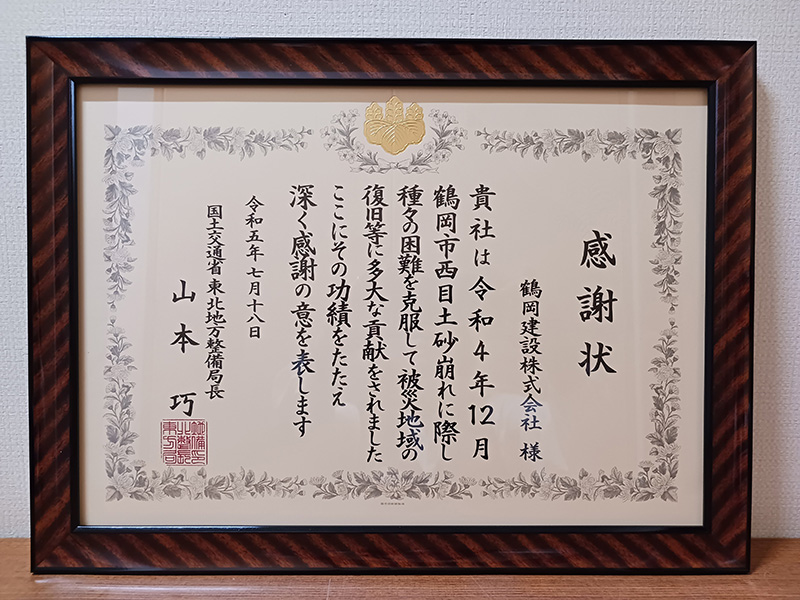 感謝状
鶴岡建設株式会社 様
貴社は令和4年12月
鶴岡市西目土砂崩れに際し
種々の困難を克服して被災地域の
復旧等に多大な貢献をされました
ここにその功績をたたえ
深く感謝の意を表します
令和五年七月十八日
国土交通省 東北地方整備局長
山本 巧